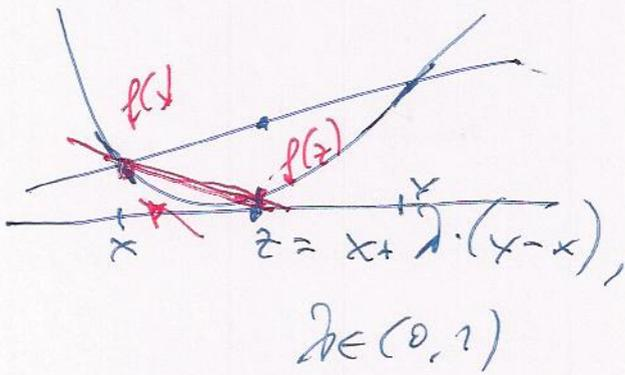 f(x)
f(z)
x
y
z = x + λ·(y-x),
λ∈(0,1)